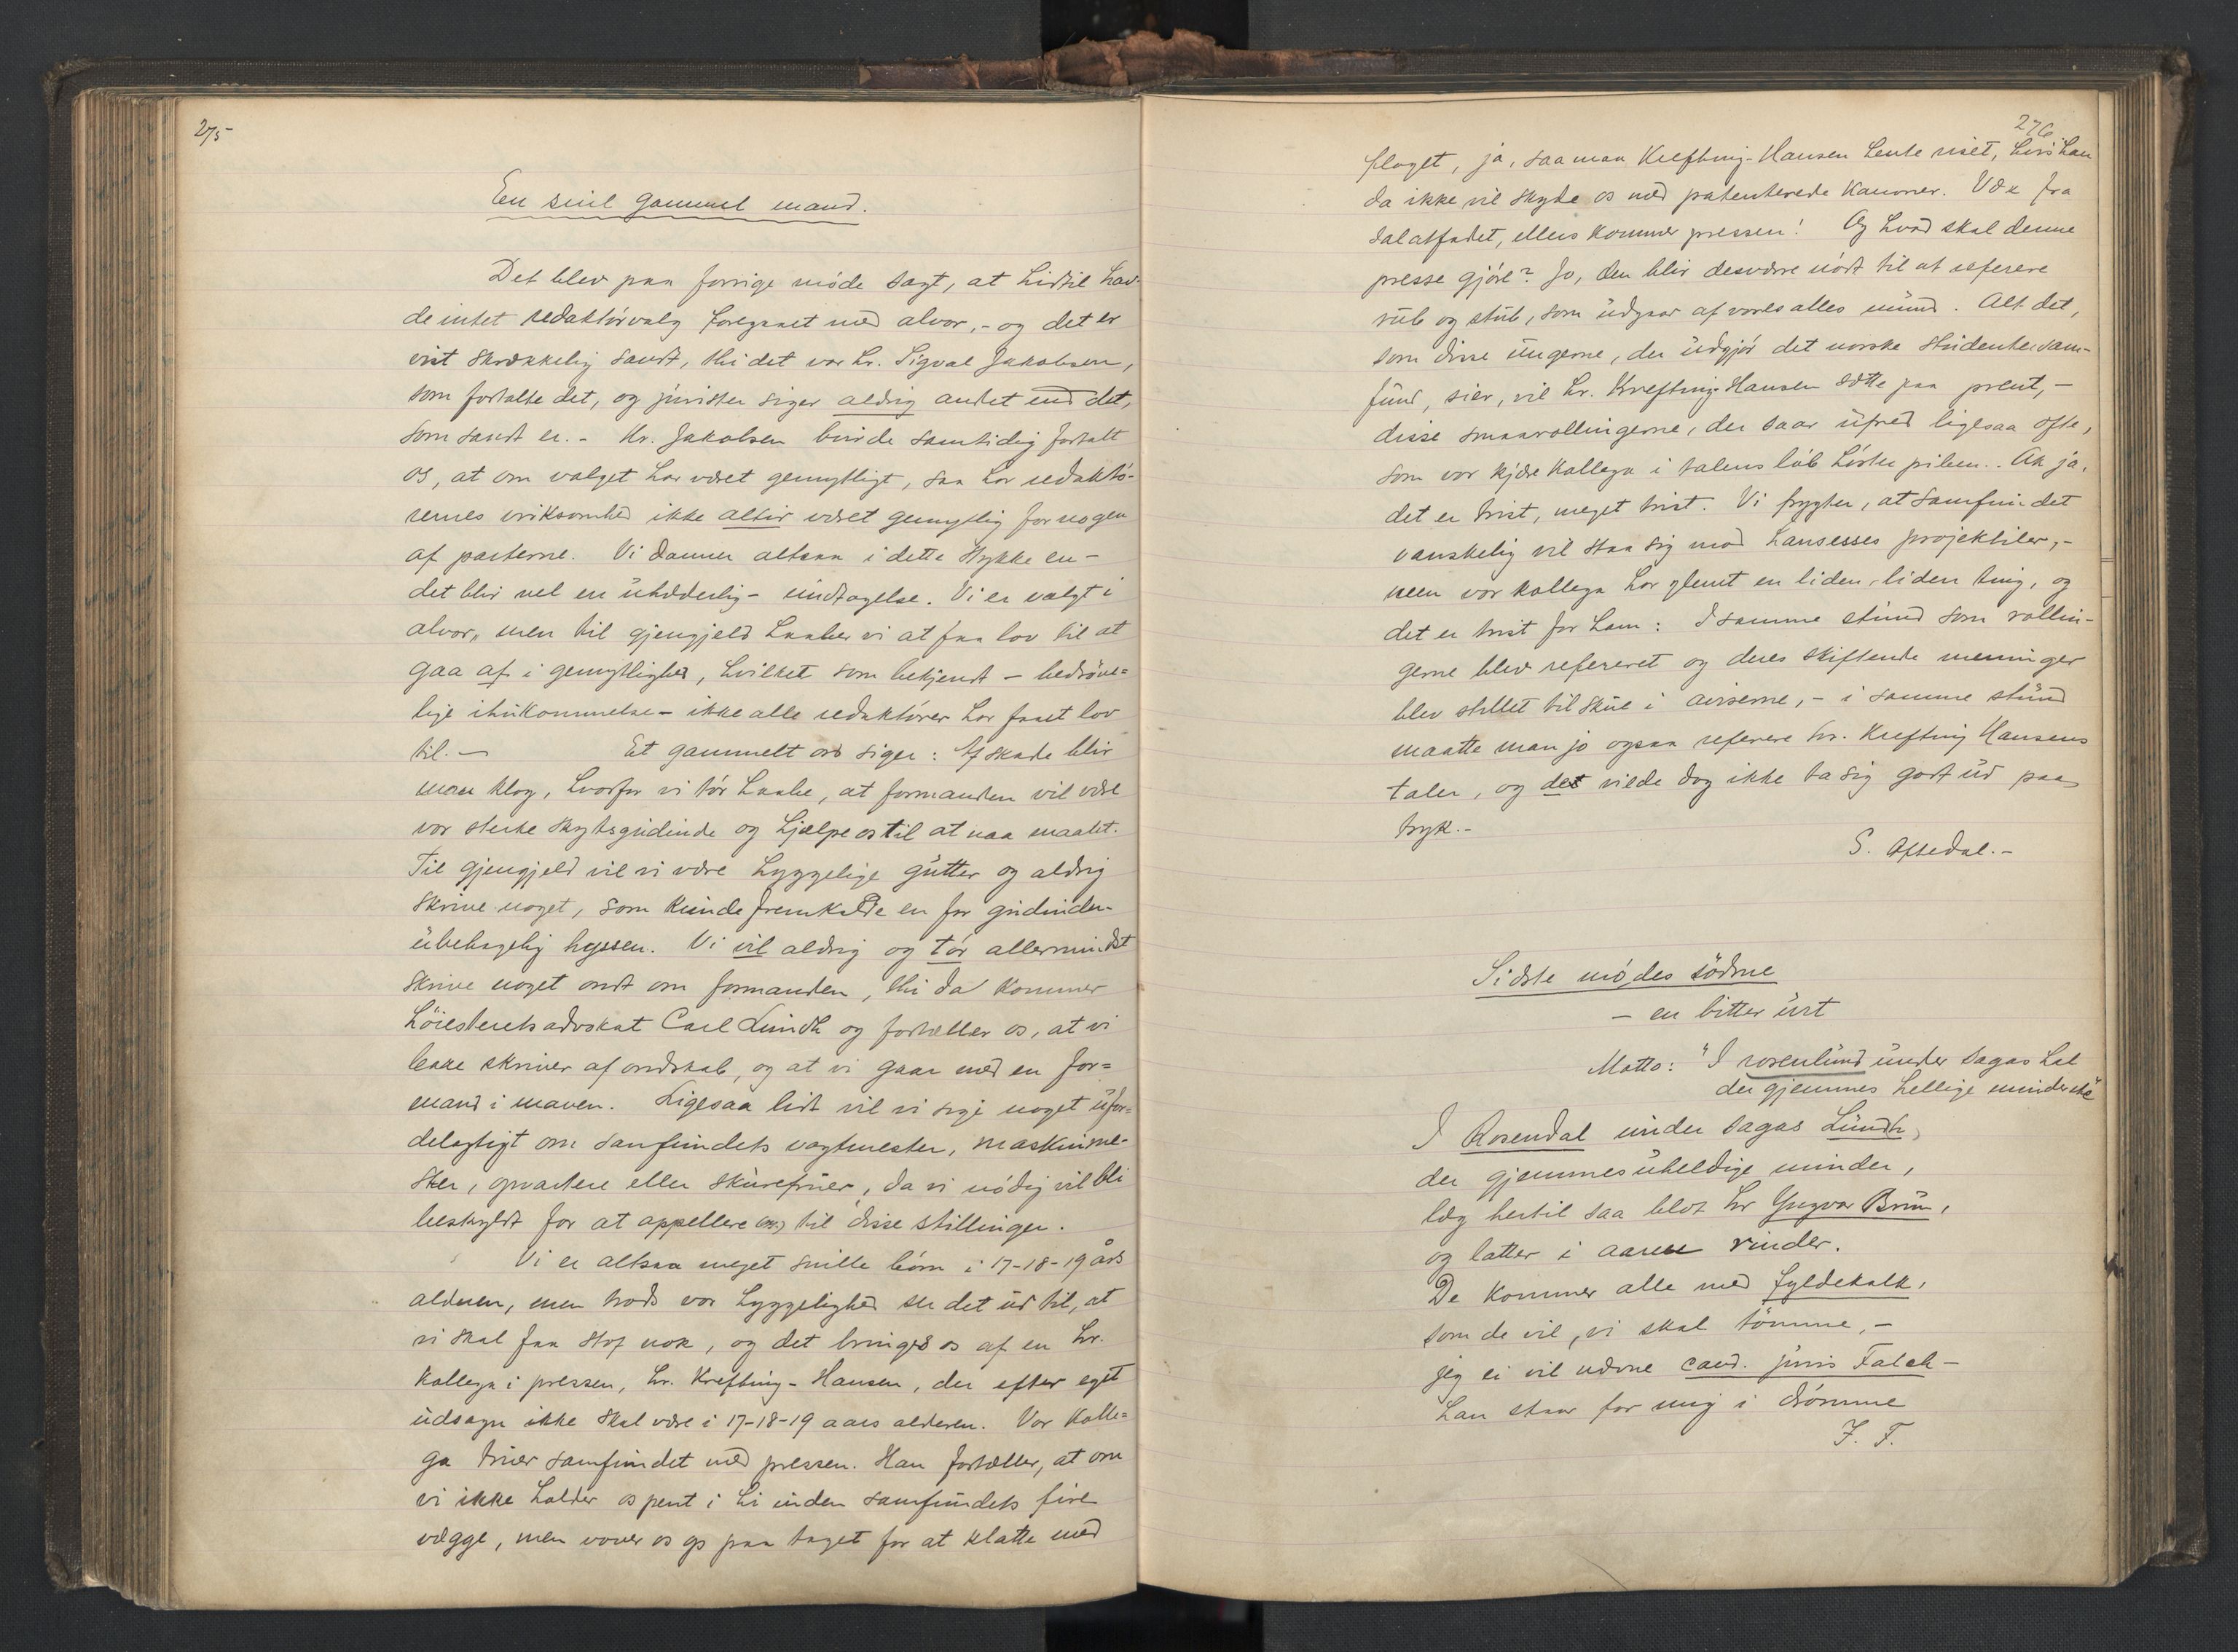 275
En snil gammel mand.
Det blev paa forrige møde sagt, at hidtil hav-
de intet redaktørvalg foregaaet med alvor, - og det er
vist skrækkelig sandt, thi det var hr. Sigval Jakobsen,
som fortalte det, og jurister siger aldrig andet end det,
som sandt er. - Hr. Jakobsen burde samtidig fortalt
os, at om valget har været gemytligt, saa har redaktø-
rernes virksomhed ikke altid været gemytlig for nogen
af parterne. Vi danner altsaa i dette stykke en -
det blir vel en uhæderlig - undtagelse. Vi er valgt i
alvor, men til gjengjeld haaber vi at faa lov til at
gaa af i gemytlighed, hvilket som bekjendt - bedrøve=
lige ihukommelse - ikke alle redaktører har faaet lov
til. - Et gammelt ord siger: Af skade blir
man klog, hvorfor vi tør haabe, at formanden vil være
vor sterke skytsgudinde og hjælpe os til at naa maalet.
Til gjengjeld vil vi være hyggelige gutter og aldrig
skrive noget, som kunde fremkalde en for gudinden
ubehagelig hyssen. Vi vil aldrig og tør allermindst
skrive noget ondt om formanden, thi da kommer
høiesteretsadvokat Carl Lundh og fortæller os, at vi
bare skriver af ondskab, og at vi gaar med en for=
mand i maven. Ligesaa lidt vil vi sige noget ufor=
delagtigt om samfundets vagtmester, maskinme-
ster, opvartere eller skurefruer, da vi nødig vil bli
beskyldt for at appellere (os) til disse stillinger.
Vi er altsaa meget snille børn i 17-18-19 års
alderen, men trods vor hyggelighed ser det ud til, at
vi skal faa stof nok, og det bringes os af en hr.
kollega i pressen, hr. Krefting-Hansen, der efter eget
udsagn ikke skal være i 17-18-19 aars alderen. Vor kolle=
ga truer samfundet med pressen. Han fortæller, at om
vi ikke holder os pent i hi inden samfundets fire
vægge, men vover os op paa taget for at klatte med
276
flaget, ja, saa maa Krefting-Hansen hente riset, hvis han
da ikke vil skyde os med patenterede kanoner. Væk fra
salatfadet, ellers kommer pressen! Og hvad skal denne
presse gjøre? Jo, den blir desværre nødt til at referere
rub og stub, som udgaar af vores alles mund. Alt det,
som disse ungerne, der udgjør det norske studentersam-
fund, sier, vil hr. Krefting-Hansen sætte paa prent, -
disse smaarollingerne, der saar ufred ligesaa ofte,
som vor kjære kollega i talens løb høster piben. Ak ja,
det er trist, meget trist. Vi frygter, at samfundet
vanskelig vil staa sig mod Hansesses projektiler, -
men vor kollega har glemt en liden, liden ting, og
det er trist for ham: I samme stund som rollin-
gerne blev refereret og deres skiftende meninger
blev stillet til skue i aviserne, - i samme stund
maatte man jo ogsaa referere hr. Krefting Hansens
taler, og det vilde dog ikke ta sig godt ud paa
tryk. -
S. Aftedal. -
Sidste mødes sødme
- en bitter urt
Motto: "I rosenlund under Sagas hal
der gjemmes hellige minder
I Rosendal under Sagas Lundh,
der gjemmes uheldige minder,
læg hertil saa blot hr Yngvar Brun,
og latter i aaren rinder.
De kommer alle med fyldekalk,
som de vil, vi skal tømme, -
jeg ei vil nævne cand. juris Falch -
han staar for mig i drømme
J. F.